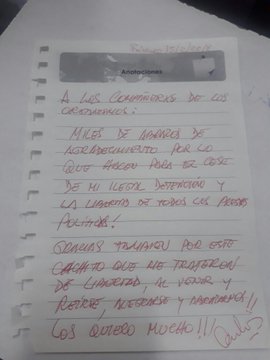 Anotaciones
A LOS COMPAÑEROS DE LOS
ORGANISMOS:
MILES DE ABRAZOS DE
AGRADECIMIENTO POR LO
QUE HACEN PARA EL CESE
DE MI ILEGAL DETENCIÓN Y
LA LIBERTAD DE TODOS LOS PRESOS
POLÍTICOS!
GRACIAS TAMBIEN POR ESTE
CACHITO QUE ME TRAJERON
DE LIBERTAD, AL VENIR Y
REIRSE, ALEGRARSE Y ABRAZARNOS!!
LOS QUIERO MUCHO!!!